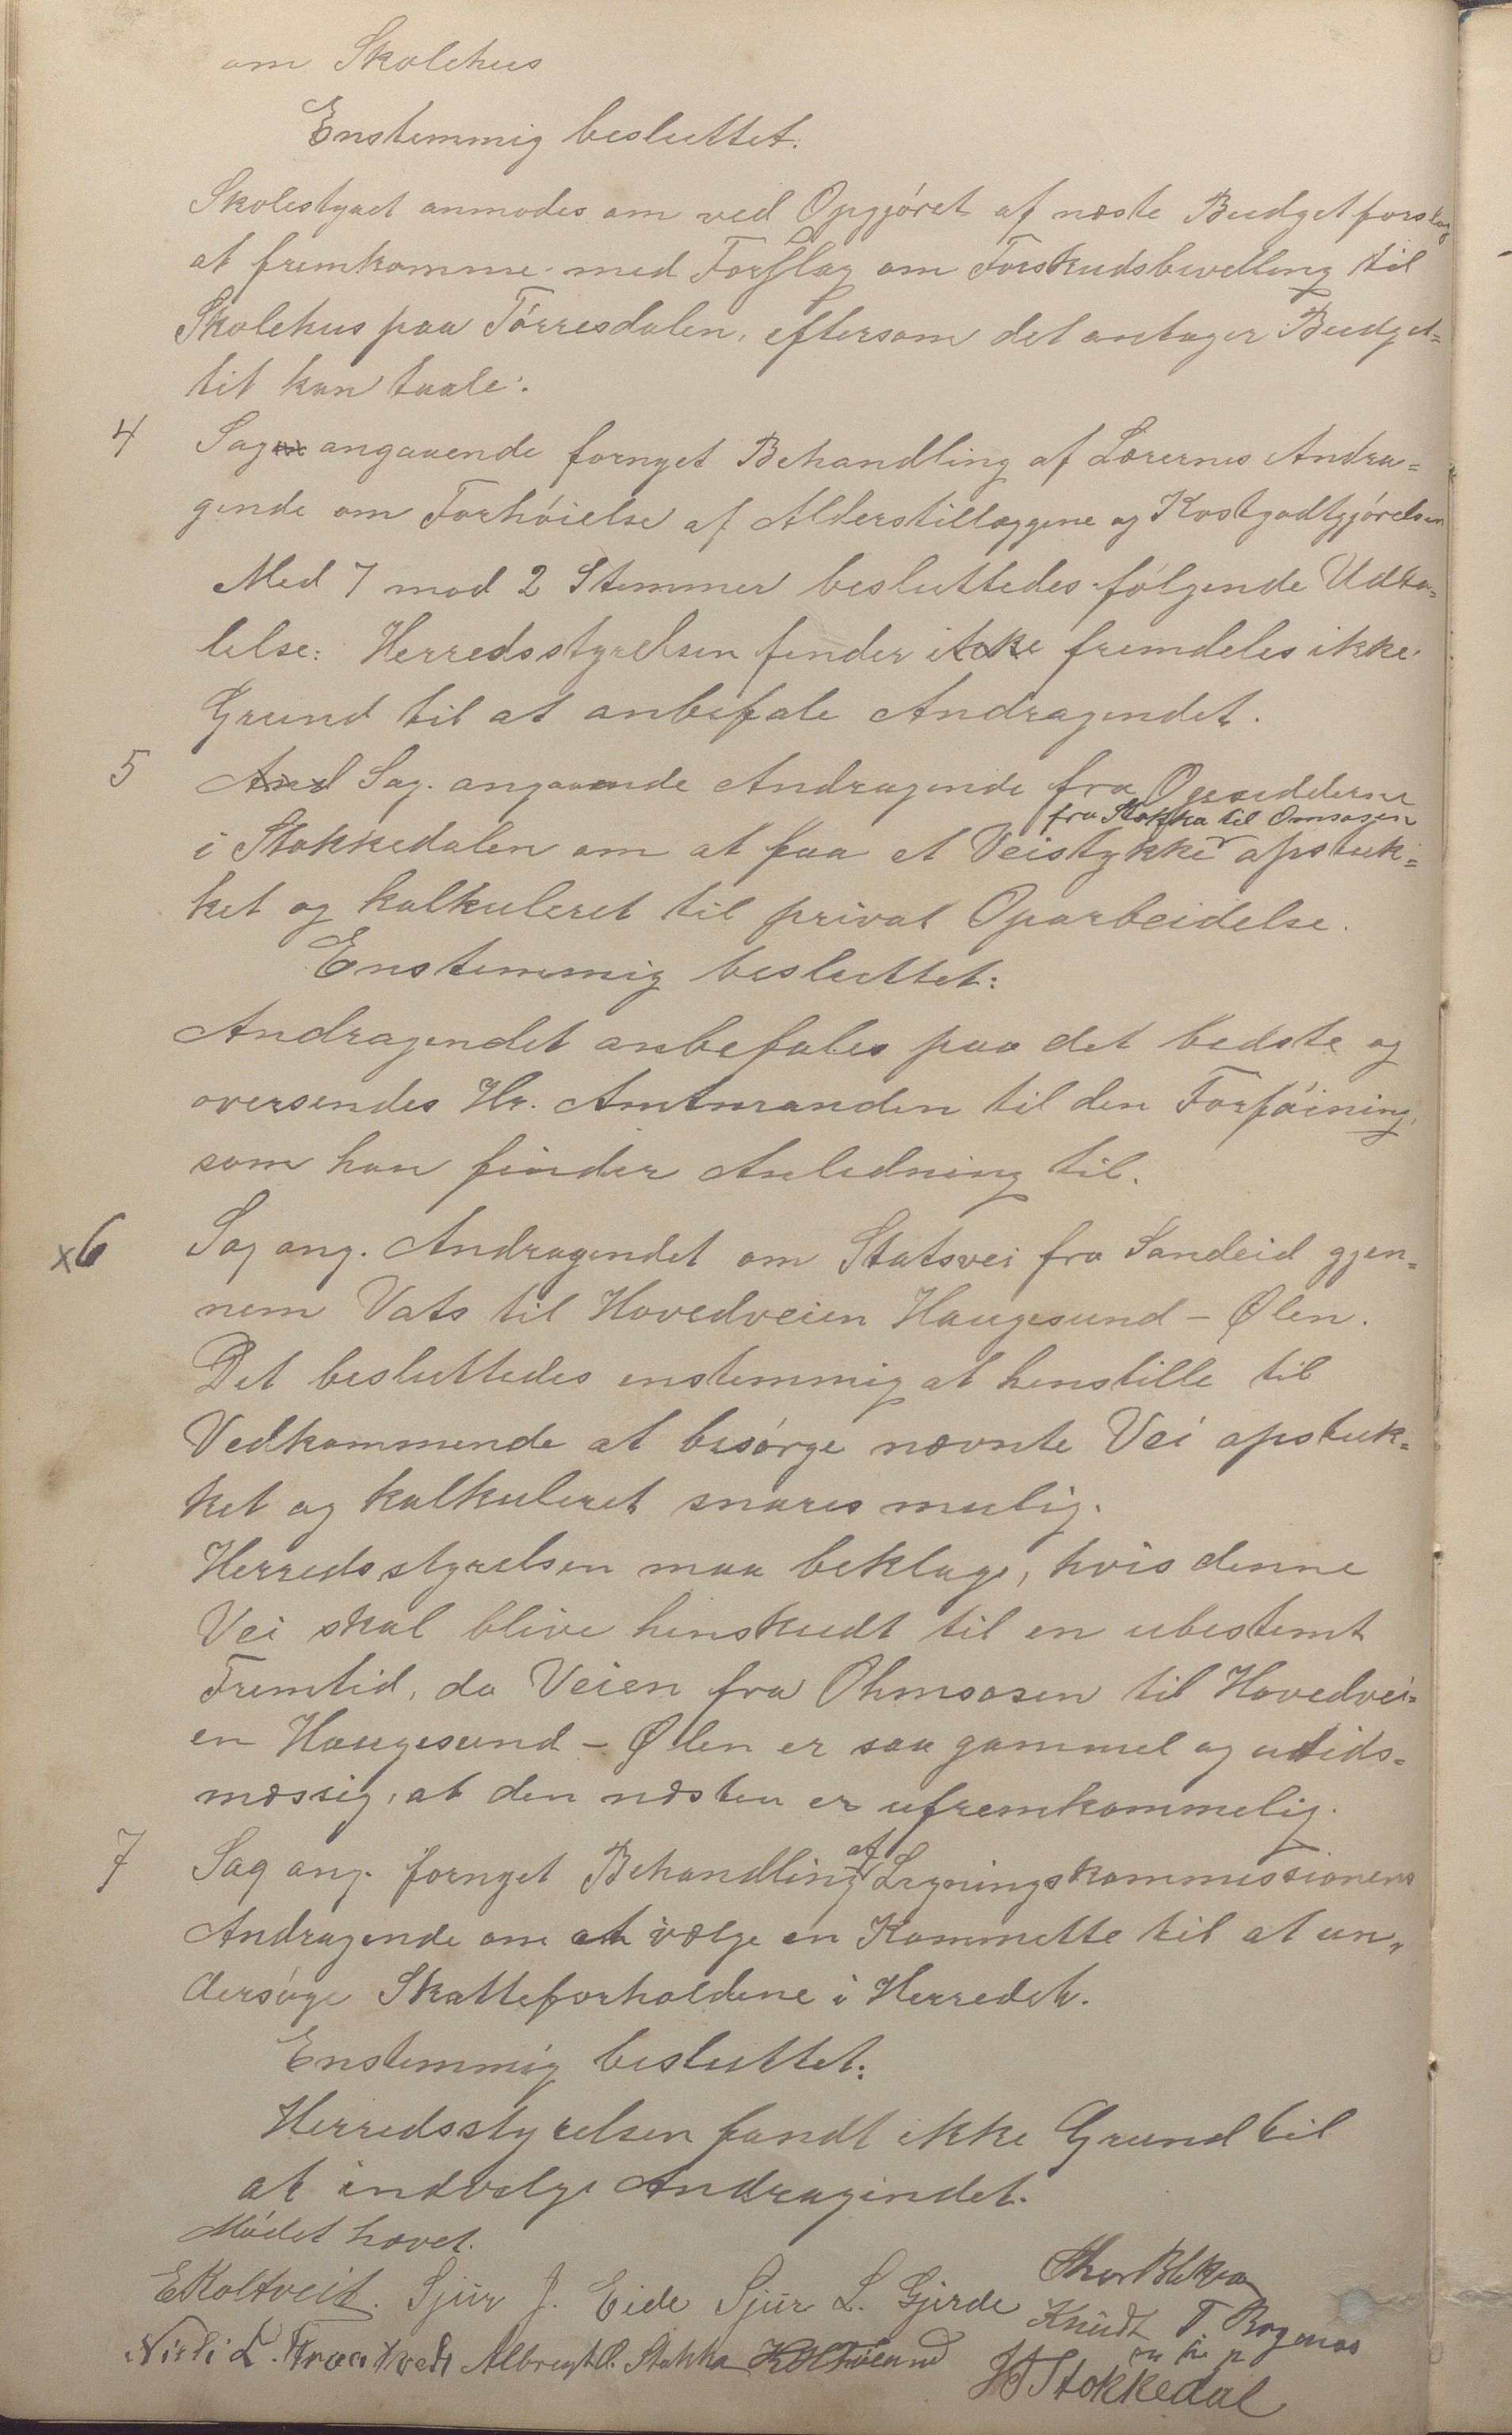 om Skolehus
Enstemmig besluttet:
Skolestyret anmodes om ved Opgjöret af næste Budgetforslag
at fremkomme med Forslag om Forskudsbevilling til
Skolehus paa Törresdalen, eftersom det antager Budget=
tit kan taale.
4 Sagen angaaende fornyet Behandling af Lærernes Andra=
gende om Forhöielse af Alderstillæggene og Kostgodtgjörelsen
Med 7 mod 2 Stemmer besluttedes fölgende Udta=
lelse: Herredsstyrelsen finder ikke fremdeles ikke
Grund til at anbefale Andragendet.
5 And Sag. angaaende Andragende fra Opsidderne
fra Stokka til Omsosen
i Stokkedalen om at faa et Veistykke opstuk=
ket og kalkuleret til privat Oparbeidelse.
Enstemmig besluttet:
Andragendet anbefales paa det bedste og
oversendes Hr. Amtmanden til den Forföining,
som han finder Anledning til.
x6 Sag ang. Andragendet om Statsvei fra Sandeid gjen=
nem Vats til Hovedveien Haugesund – Ølen.
Det besluttedes enstemmig at henstille til
Vedkommende at besörge nævnte Vei opstuk=
ket og kalkuleret snares mulig.
Herredsstyrelsen maa beklage, hvis denne
Vei skal blive hinskudt til en ubestemt
Fremtid, da Veien fra Ohmsosen til Hovedvei=
en Haugesund – Ølen er saa gammel og utids=
mæssig, at den næsten er ufremkommelig.
7 Sag ang. fornyet Behandling af Ligningskommissionens
Andragende om at vælge en Kommitte til at un„
dersöge Skatteforholdene i Herredet.
Enstemmig besluttet:
Herredsstyrelsen fandt ikke Grund til
at indvelge Andragindet.
Mödet hævet.
EKoltveit. Sjur J. Eide Sjur L. Gjerde Thor Blikra
Knudt T.
Niels L. Albregt O. Stokka m. p. p.
Stokkedal